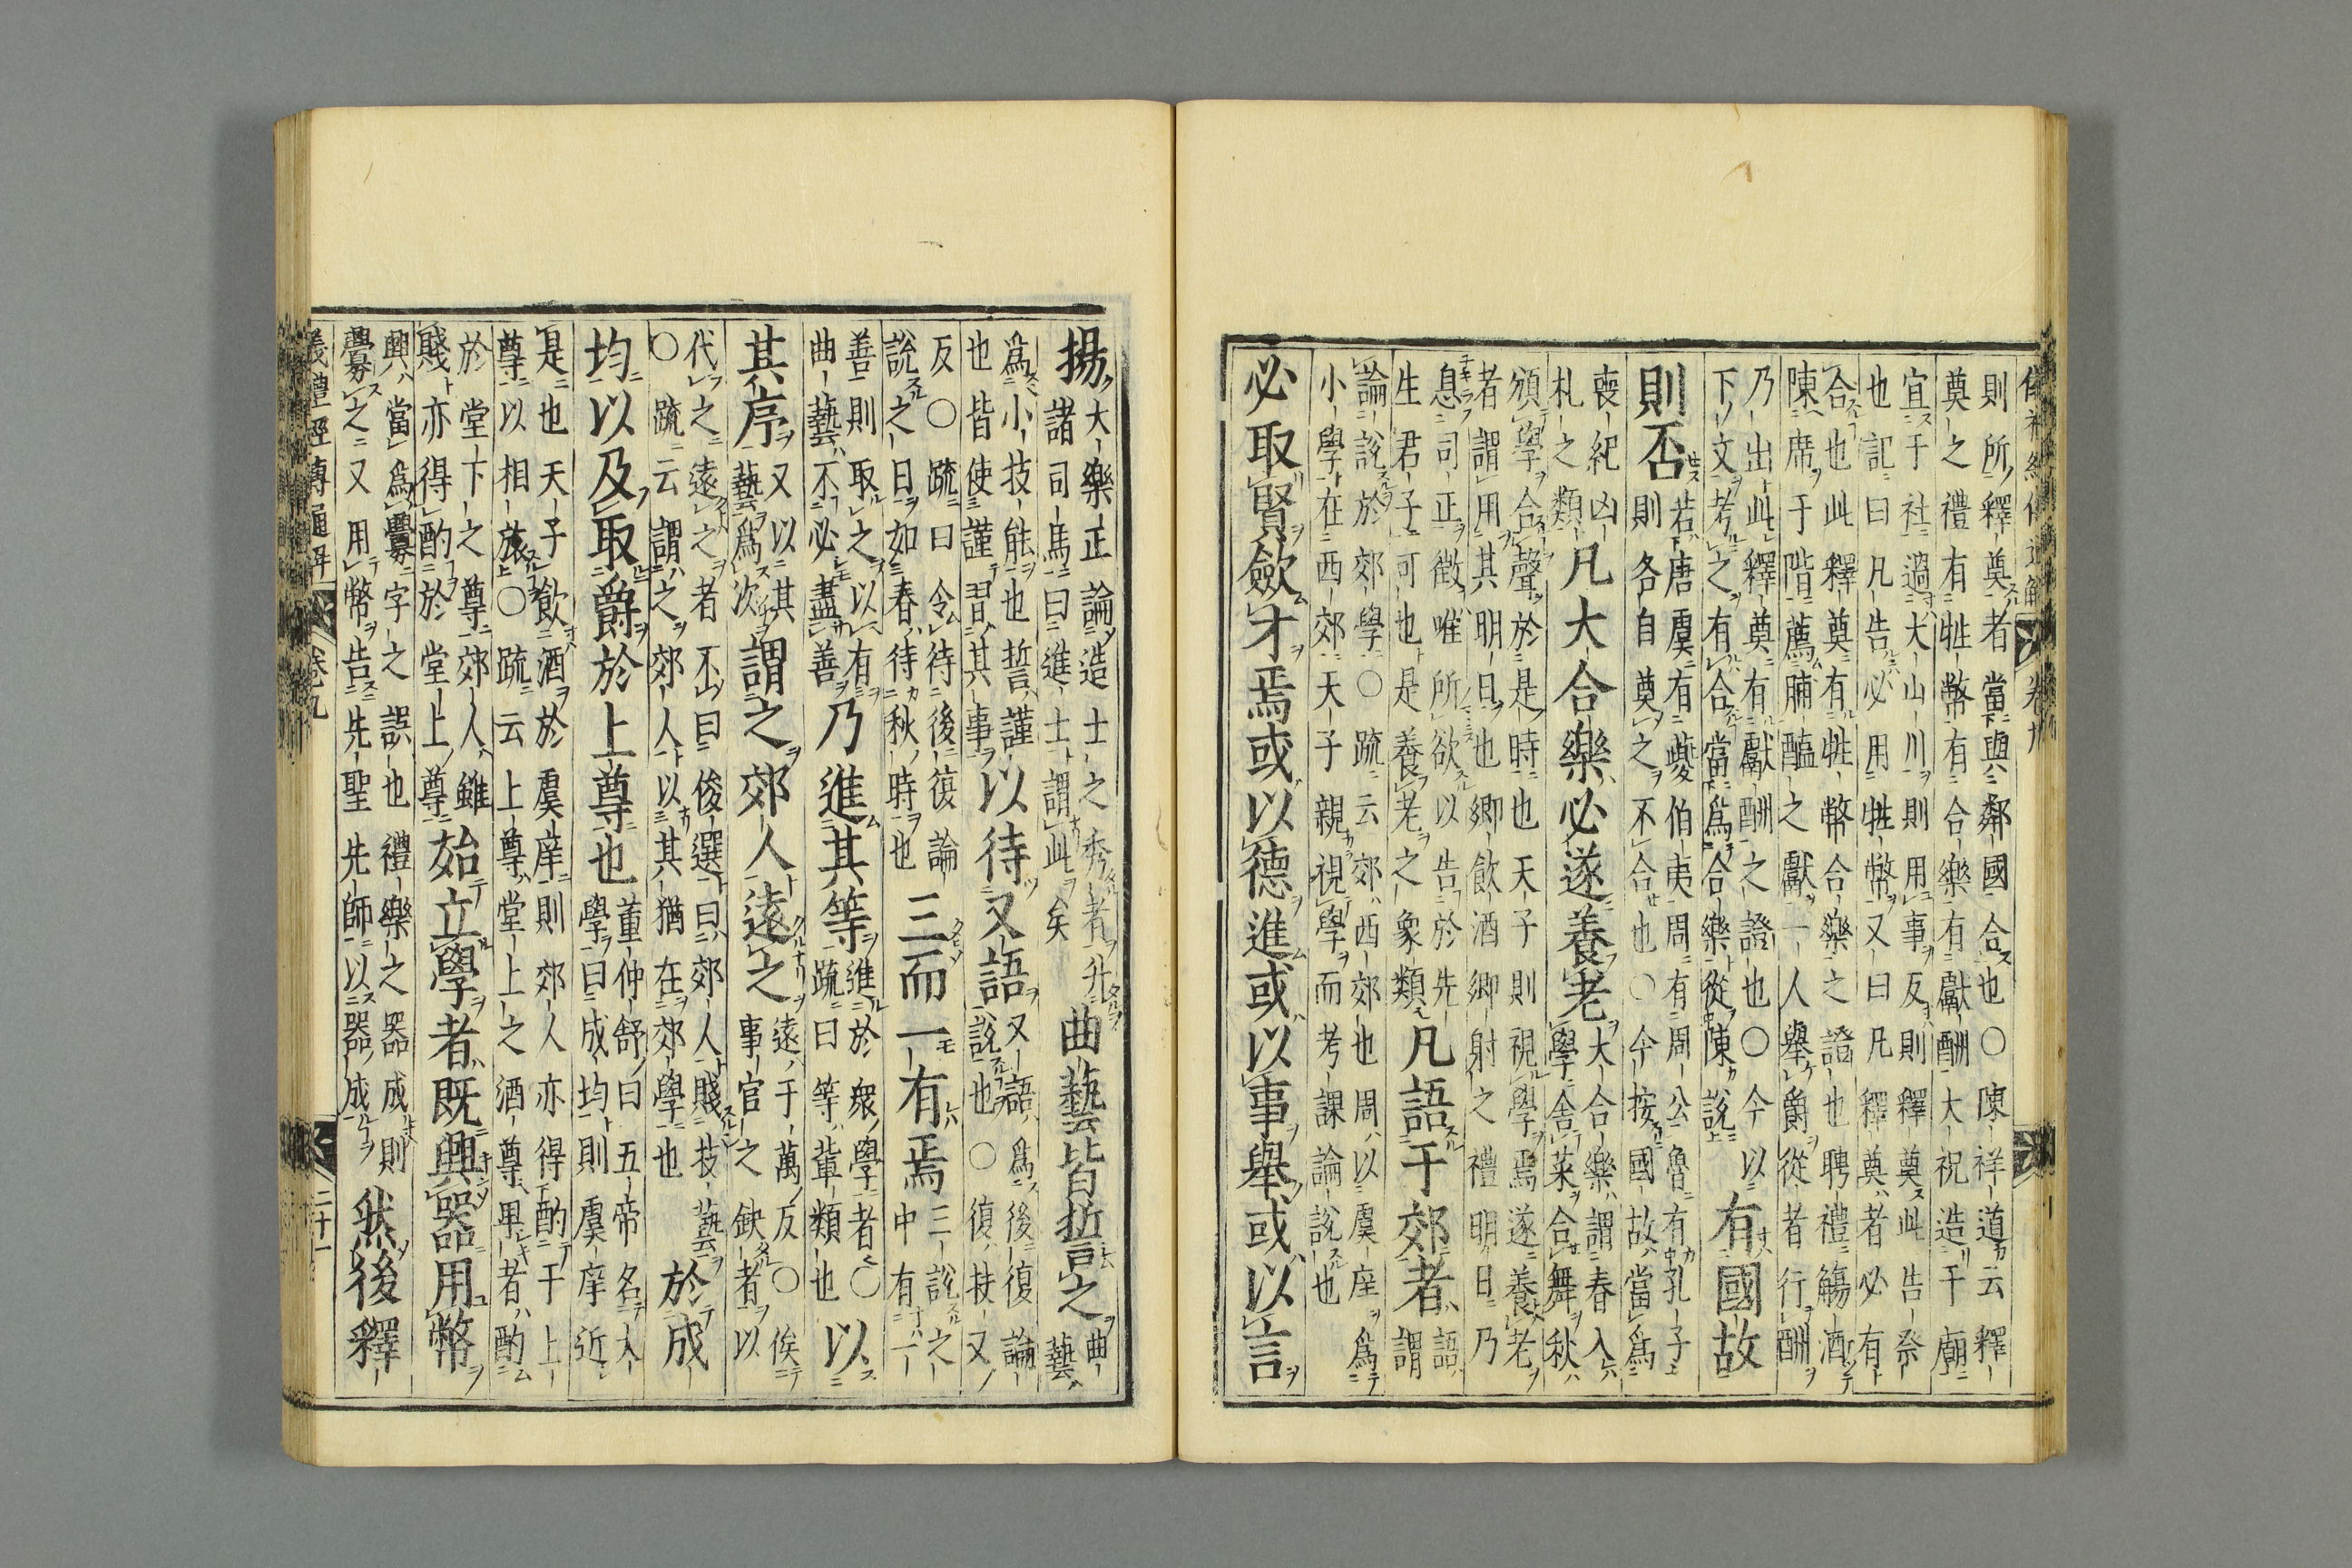 則所釋奠者當與鄰國合也○陳祥道云釋
奠之禮有牲幣有合樂有獻酬大祝造于廟
宜于社過大山川則用事反則釋奠此告祭
也記曰凡告必用牲幣又曰凡釋奠者必有
合也此釋奠有牲幣合樂之證也聘禮觴酒
陳席于階薦脯醢之獻一人舉爵從者行酬
乃出此釋奠有獻酬之證也○今以
下文考之有合當為合樂從陳說
有國故
則否
若唐虞有夔伯夷周有周公魯有孔子
則各自奠之不合也○今按國故當為
喪紀凶
札之類
凡大合樂必遂養老
大合樂謂春入
學舍菜合舞秋
頒學合聲於是時也天子則視學焉遂養老
者謂用其明日也鄉飲酒鄉射之禮明日乃
息司正徵唯所欲以告於先
生君子可也是養老之象類
凡語于郊者
語
謂
論說於郊學○疏云郊西郊也周以虞庠為
小學在西郊天子親視學而考課論說也
必取賢斂才焉或以德進或以事舉或以言
卷九
揚
大樂正論造士之秀者升
諸司馬曰進士謂此矣
曲藝皆誓之
曲
藝
為小技能也誓謹
也皆使謹習其事
以待又語
又語為後復論
說也○復扶又
反○疏曰令待後復論
說之日如春待秋時也
三而一有焉
三說之
中有一
善則取之以有
曲藝不必盡善
乃進其等
進於眾學者○
疏曰等輩類也
以
其序
又以其
藝為次
謂之郊人遠之
遠于萬反○俟
事官之缺者以
代之遠之者不曰俊選曰郊人賤技藝
○疏云謂之郊人以其猶在郊學也
於成
均以及取爵於上尊也
董仲舒曰五帝名大
學曰成均則虞庠近
是也天子飲酒於虞庠則郊人亦得酌于上
尊以相旅○疏云上尊堂上之酒尊卑者酌
於堂下之尊郊人雖
賤亦得酌於堂上尊
始立學者既興器用幣
興當為釁字之誤也禮樂之器成則
釁之又用幣告先聖先師以器成
然後釋
儀禮經傳通解
卷九
二十一